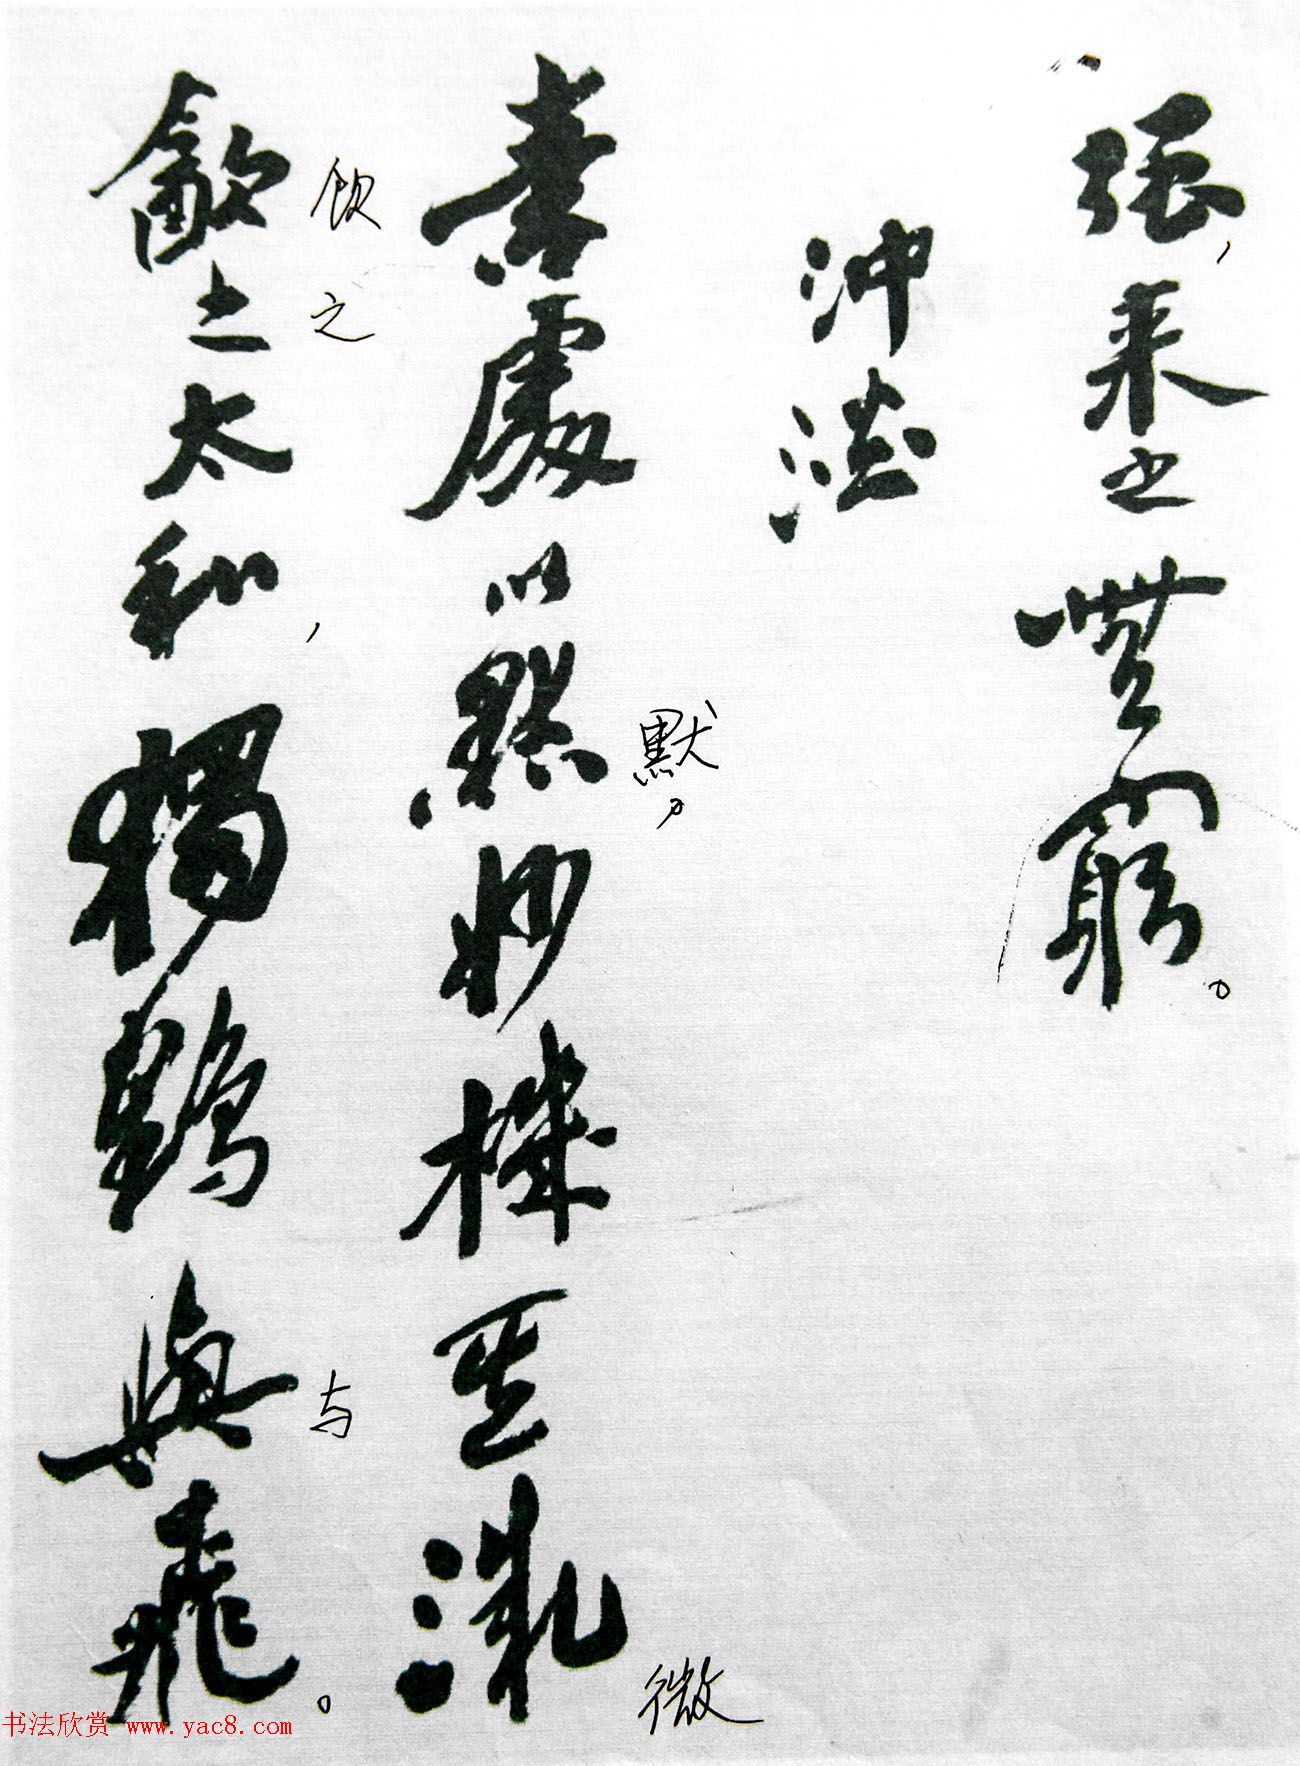 强，来之無窮。
冲澹
素處以默妙機其微
默，
微
飲之太和，獨鶴與飛。
饮
之
与
书法欣赏 www.yac8.com